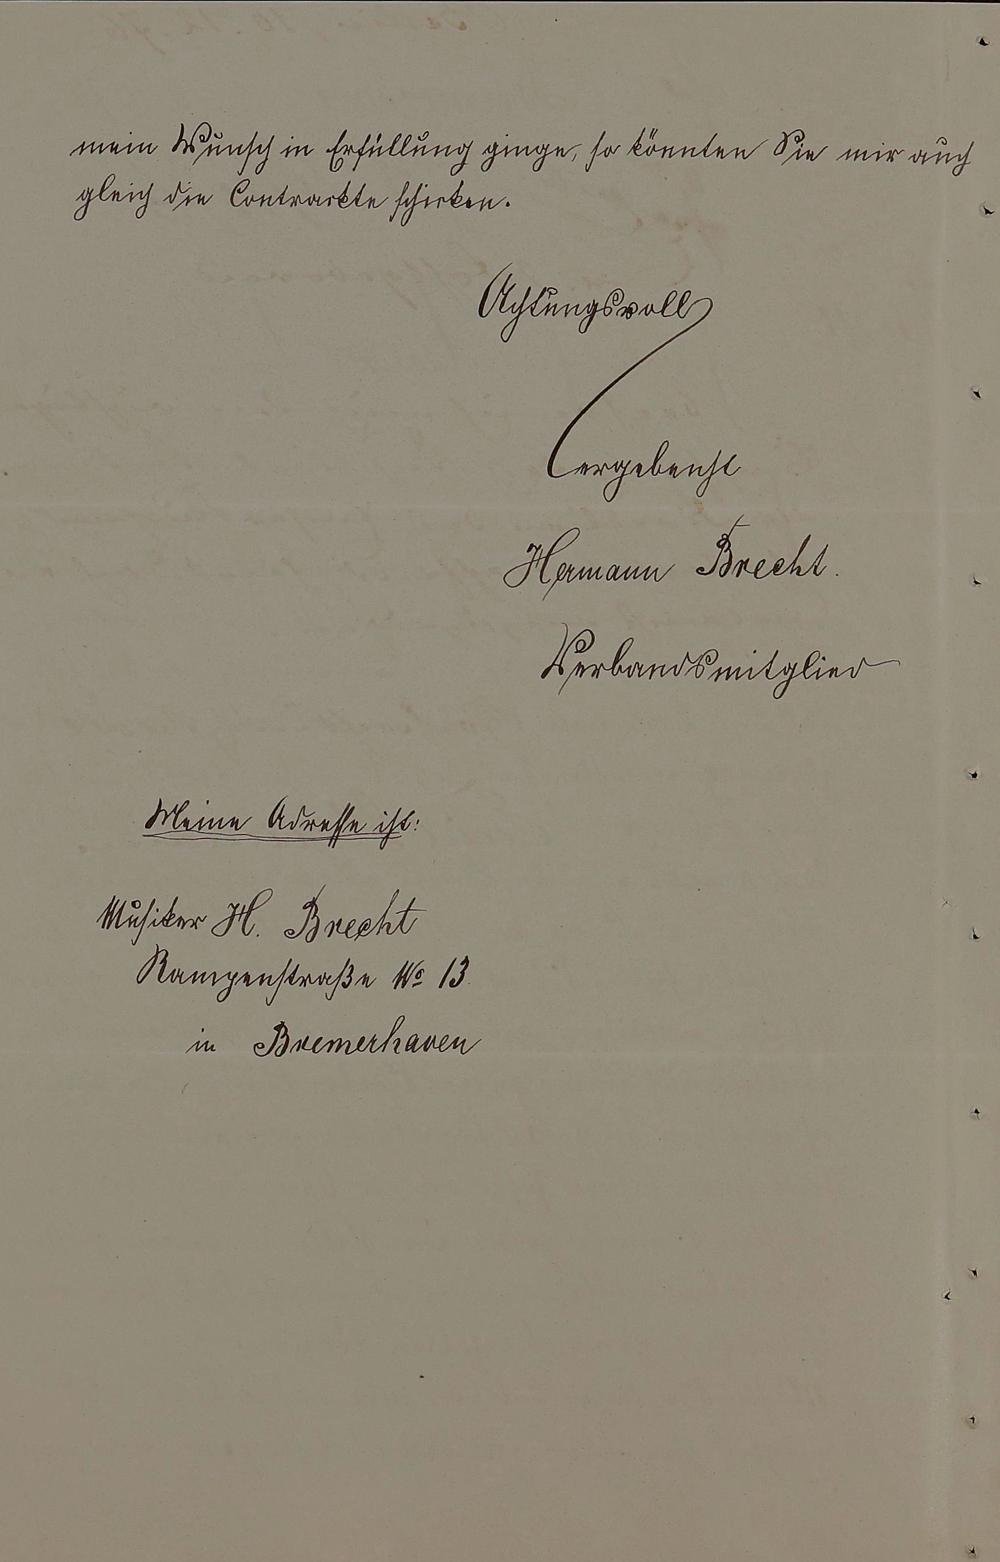 mein Wunsch in Erfüllung ginge, so könnten Sie mir auch
gleich die Contrackte schicken.
Achtungsvoll
ergebenst
Hermann Brecht.
Verbandsmitglied
Meine Adresse ist:
Musiker H. Brecht
Rampenstraße No 13
in Bremerhaven